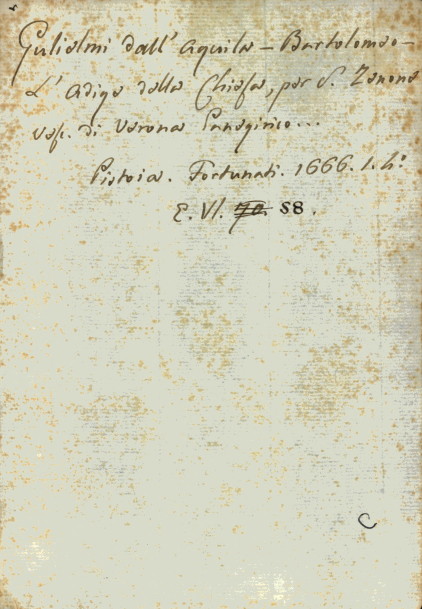 Gulielmi dall' Aquila - Bartolomeo -
L' Adige della Chiesa, per S. Zenone
Vesc. di Verona Panegirico...
Pistoia. Fortunati. 1666. 1. 4°
E. VI. 70. 58.
C